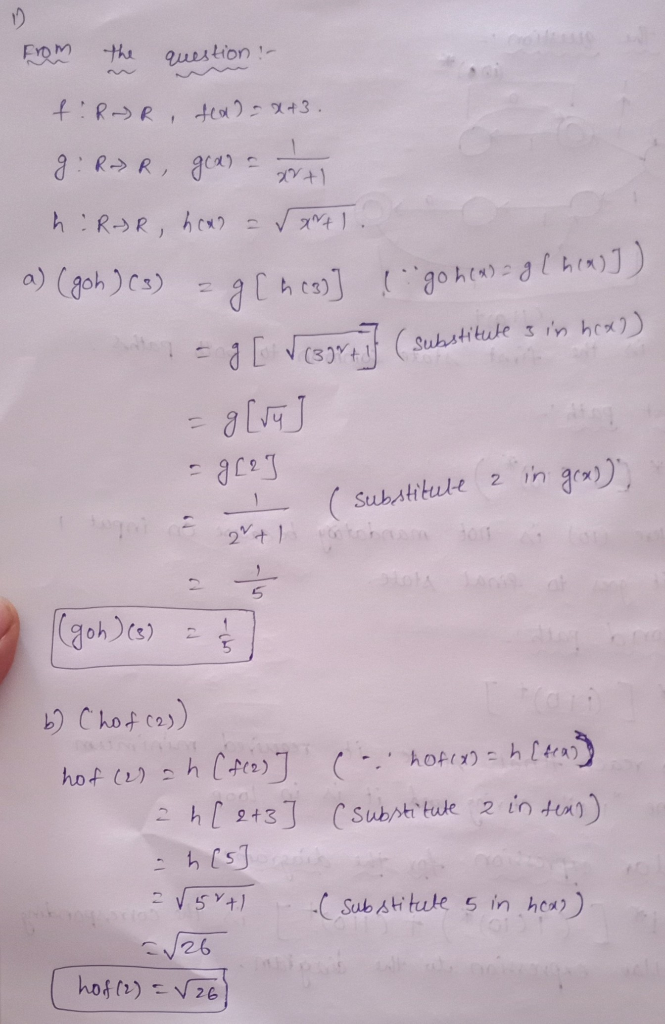 1)
From the question :-
f : R→R , f(x) = x+3.
g : R→R, g(x) = 1/(x²+1)
h : R→R, h(x) = √(x²+1).
a) (goh)(3) = g[h(3)] (∵ goh(x) = g[h(x)])
= g[√((3)²+1)] (substitute 3 in h(x))
= g[√4]
= g[2]
= 1/(2²+1) (substitute 2 in g(x))
= 1/5
(goh)(3) = 1/5
b) (hof(2))
hof(2) = h[f(2)] (∵ hof(x) = h[f(x)])
= h[2+3] (substitute 2 in f(x))
= h[5]
= √(5²+1) (substitute 5 in h(x))
= √26
hof(2) = √26